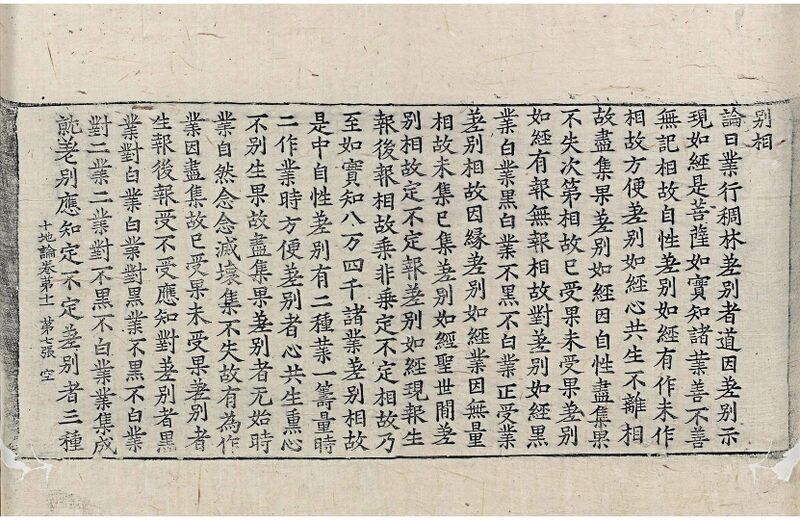 別相
論曰業行稠林差別者道因差別示
現如經是菩薩如實知諸業善不善
無記相故自性差別如經有作未作
相故方便差別如經心共生不離相
故盡集果差別如經因自性盡集果
不失次第相故已受果未受果差別
如經有報無報相故對差別如經黑
業白業黑白業不黑不白業正受業
差別相故因緣差別如經業因無量
相故未集已集差別如經聖世間差
別相故定不定報差別如經現報生
報後報相故乘非乘定不定相故乃
至如實知八万四千諸業差別相故
是中自性差別有二種業一籌量時
二作業時方便差別者心共生熏心
不別生果故盡集果差別者无始時
業自然念念滅壞集不失故有為作
業因盡集故已受果未受果差別者
生報後報受不受應知對差別者黑
業對白業白業對黑業不黑不白業
對二業二業對不黑不白業業集成
就差別應知定不定差別者三種
十地論卷第十一 第七張 空